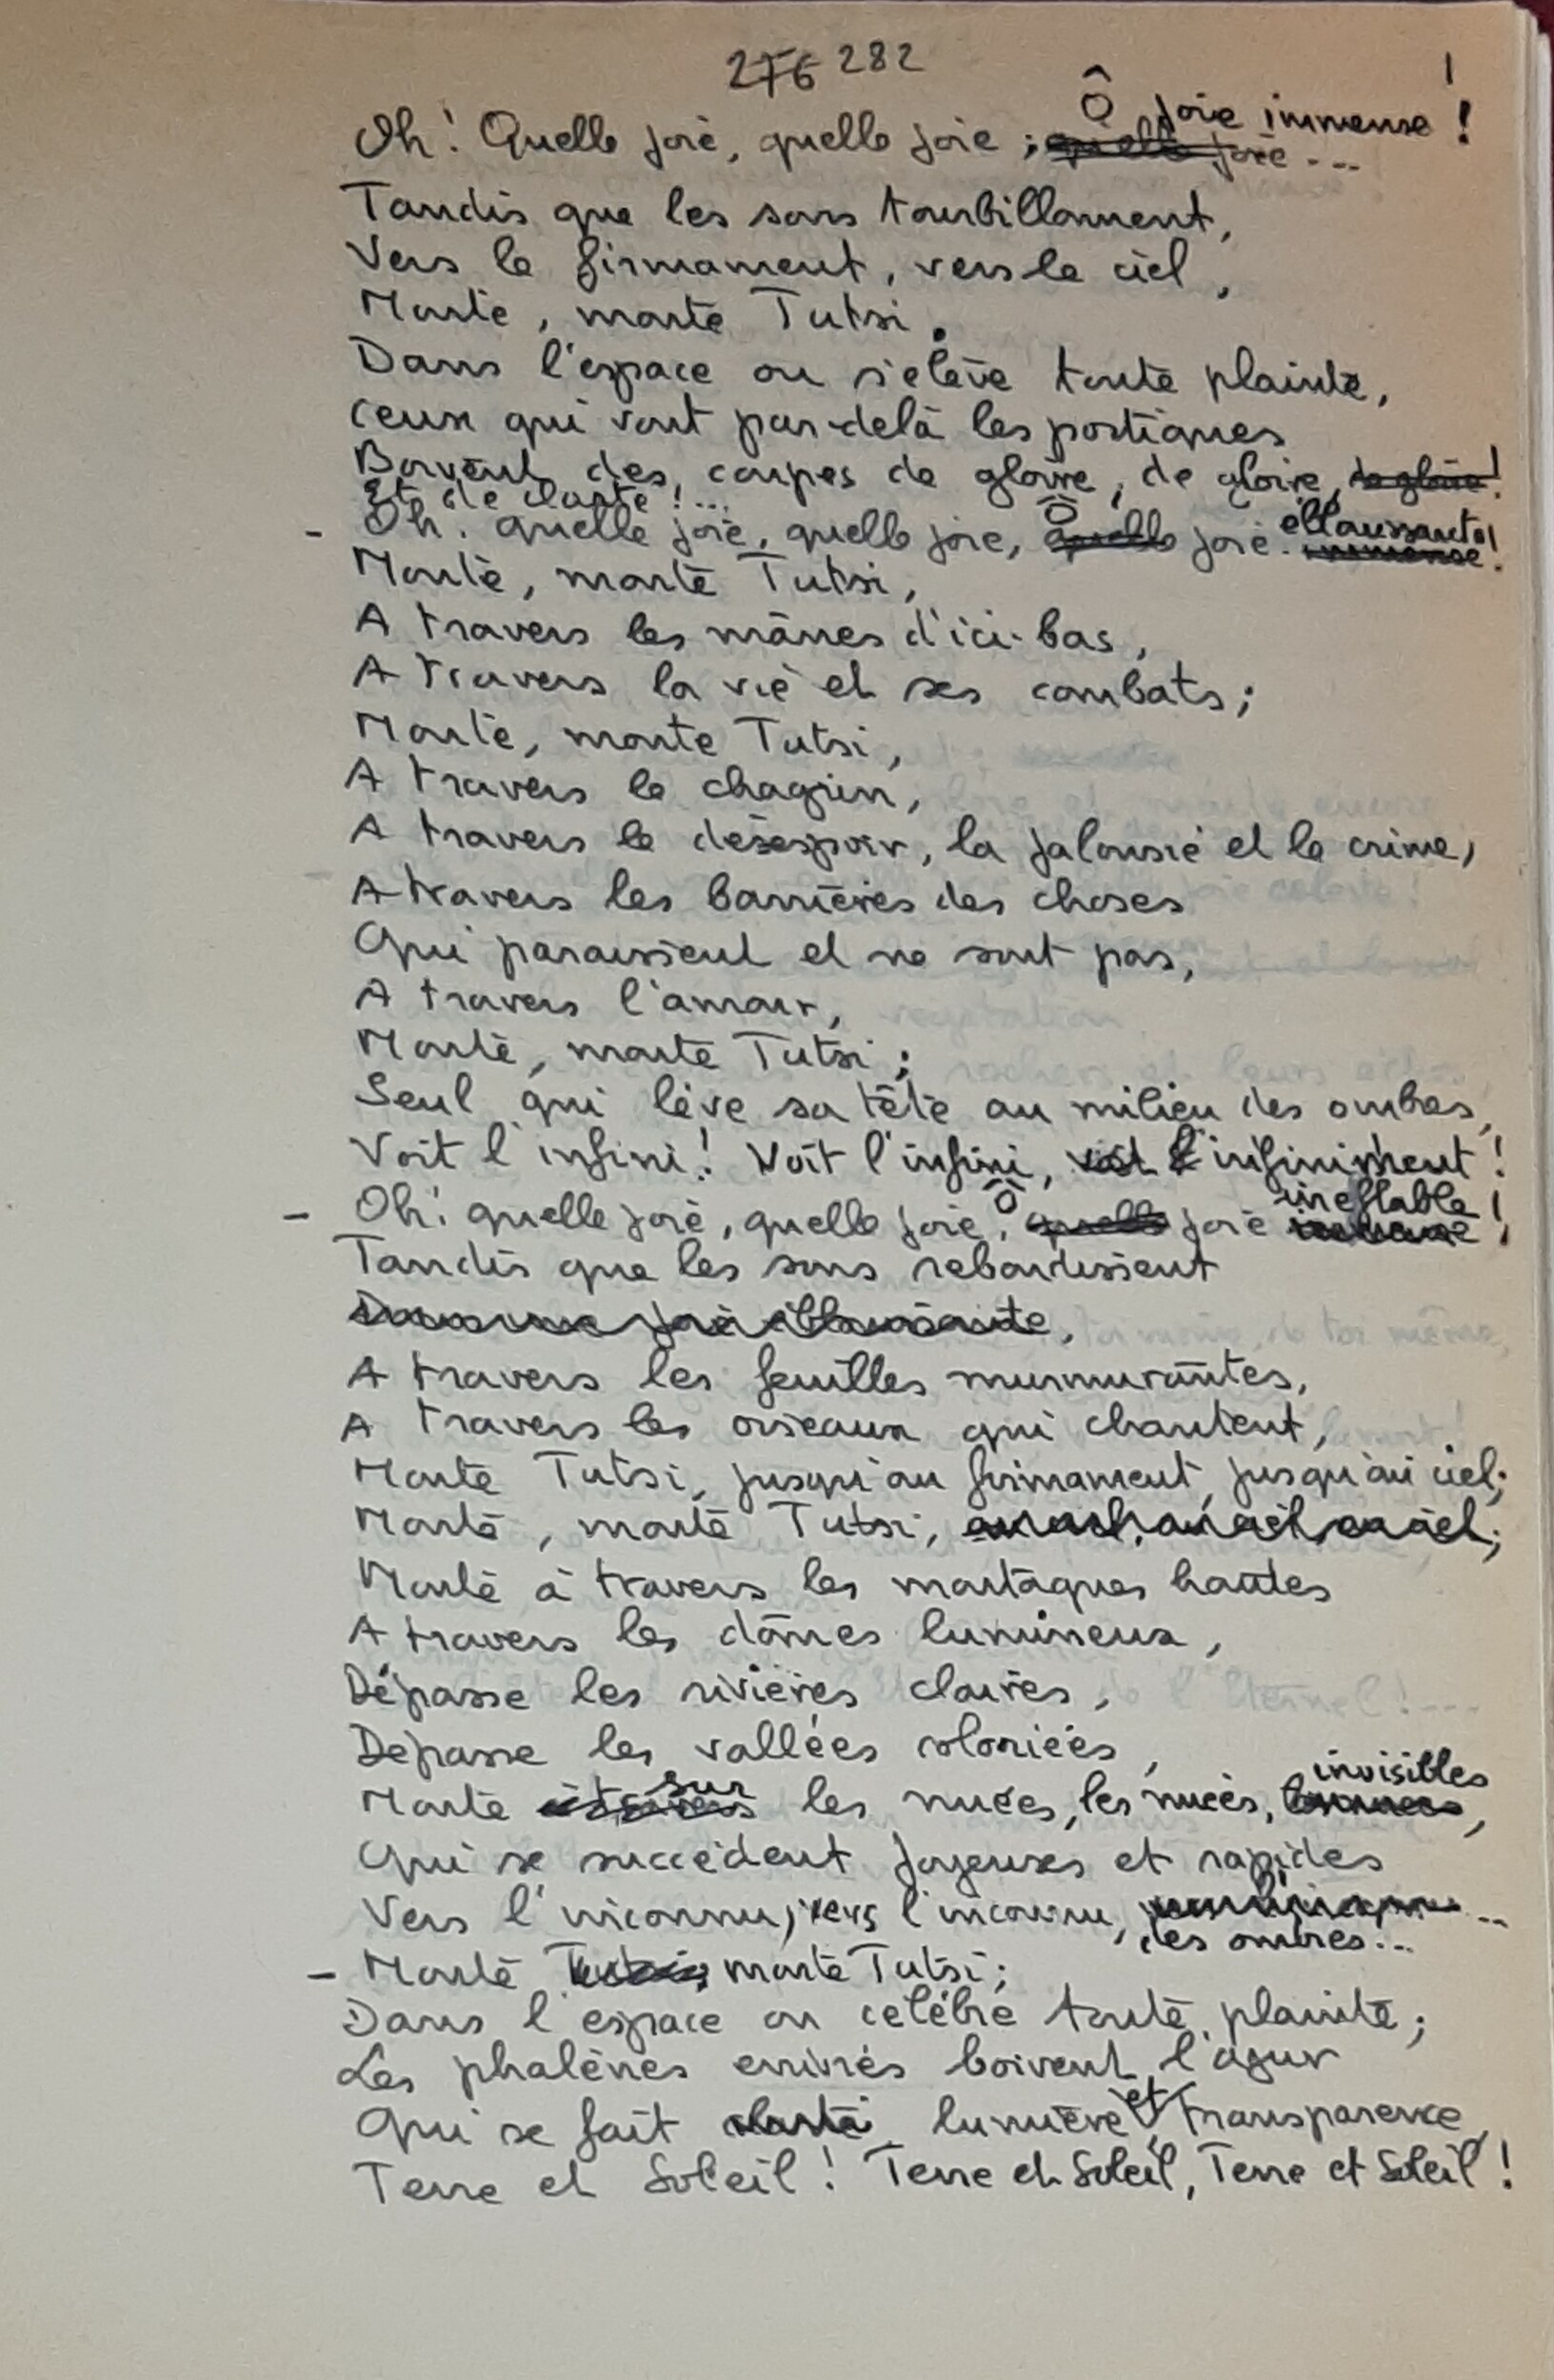 276 282
Ô joie immense !
Oh! Quelle joie, quelle joie ; quelle joie ...
Tandis que les sons tourbillonnent,
Vers le firmament, vers le ciel,
Monte, monte Tutsi.
Dans l'espace ou s'élève toute plainte,
Ceux qui vont par-delà les portiques
Boivent des coupes de gloire, de gloire, de gloire!
Et de clarté !...
Ô éblouissante!
- Oh! quelle joie, quelle joie, quelle joie immense!
Monte, monte Tutsi,
A travers les mânes d'ici-bas,
A travers la vie et ses combats;
Monte, monte Tutsi,
A travers le chagrin,
A travers le désespoir, la jalousie et le crime,
A travers les barrières des choses
Qui paraissent et ne sont pas,
A travers l'amour,
Monte, monte Tutsi;
Seul qui lève sa tête au milieu des ombres,
Voit l'infini! Voit l'infini, voit l'infiniment!
Ô ineffable !
- Oh! quelle joie, quelle joie, quelle joie immense!
Tandis que les sons rebondissent
Dans une joie éblouissante,
A travers les feuilles murmurantes,
A travers les oiseaux qui chantent,
Monte Tutsi, jusqu'au firmament, jusqu'au ciel;
Monte, monte Tutsi, au ciel, au ciel, au ciel;
Monte à travers les montagnes hautes
A travers les dômes lumineux,
Dépasse les rivières claires,
Dépasse les vallées coloriées,
sur invisibles
Monte à travers les nuées, les nuées, les nuées,
Qui se succèdent joyeuses et rapides
Vers l'inconnu, vers l'inconnu, vers l'inconnu...
des ombres...
- Monte Tutsi, monte Tutsi;
Dans l'espace on célèbre toute plainte;
Les phalènes enivrés boivent l'azur
et
Qui se fait clarté, lumière, transparence,
Terre et Soleil! Terre et Soleil, Terre et Soleil!